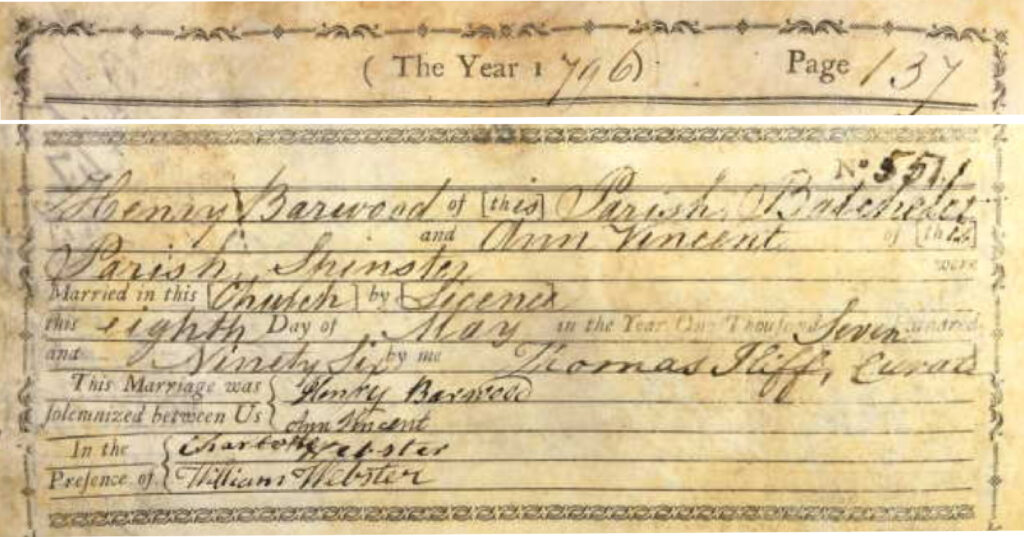 ( The Year 1796) Page 137
No 551.
Henry Barwood of [this] Parish, Batcheler
and Ann Vincent of [this]
Parish, Spinster were
Married in this [Church] by [Licence]
this eighth Day of May in the Year One Thousand Seven Hundred
and Ninety Six by me Thomas Iliff, Curate
This Marriage was { Henry Barwood
solemnized between Us { Ann Vincent
In the { Charlotte Webster
Presence of { William Webster